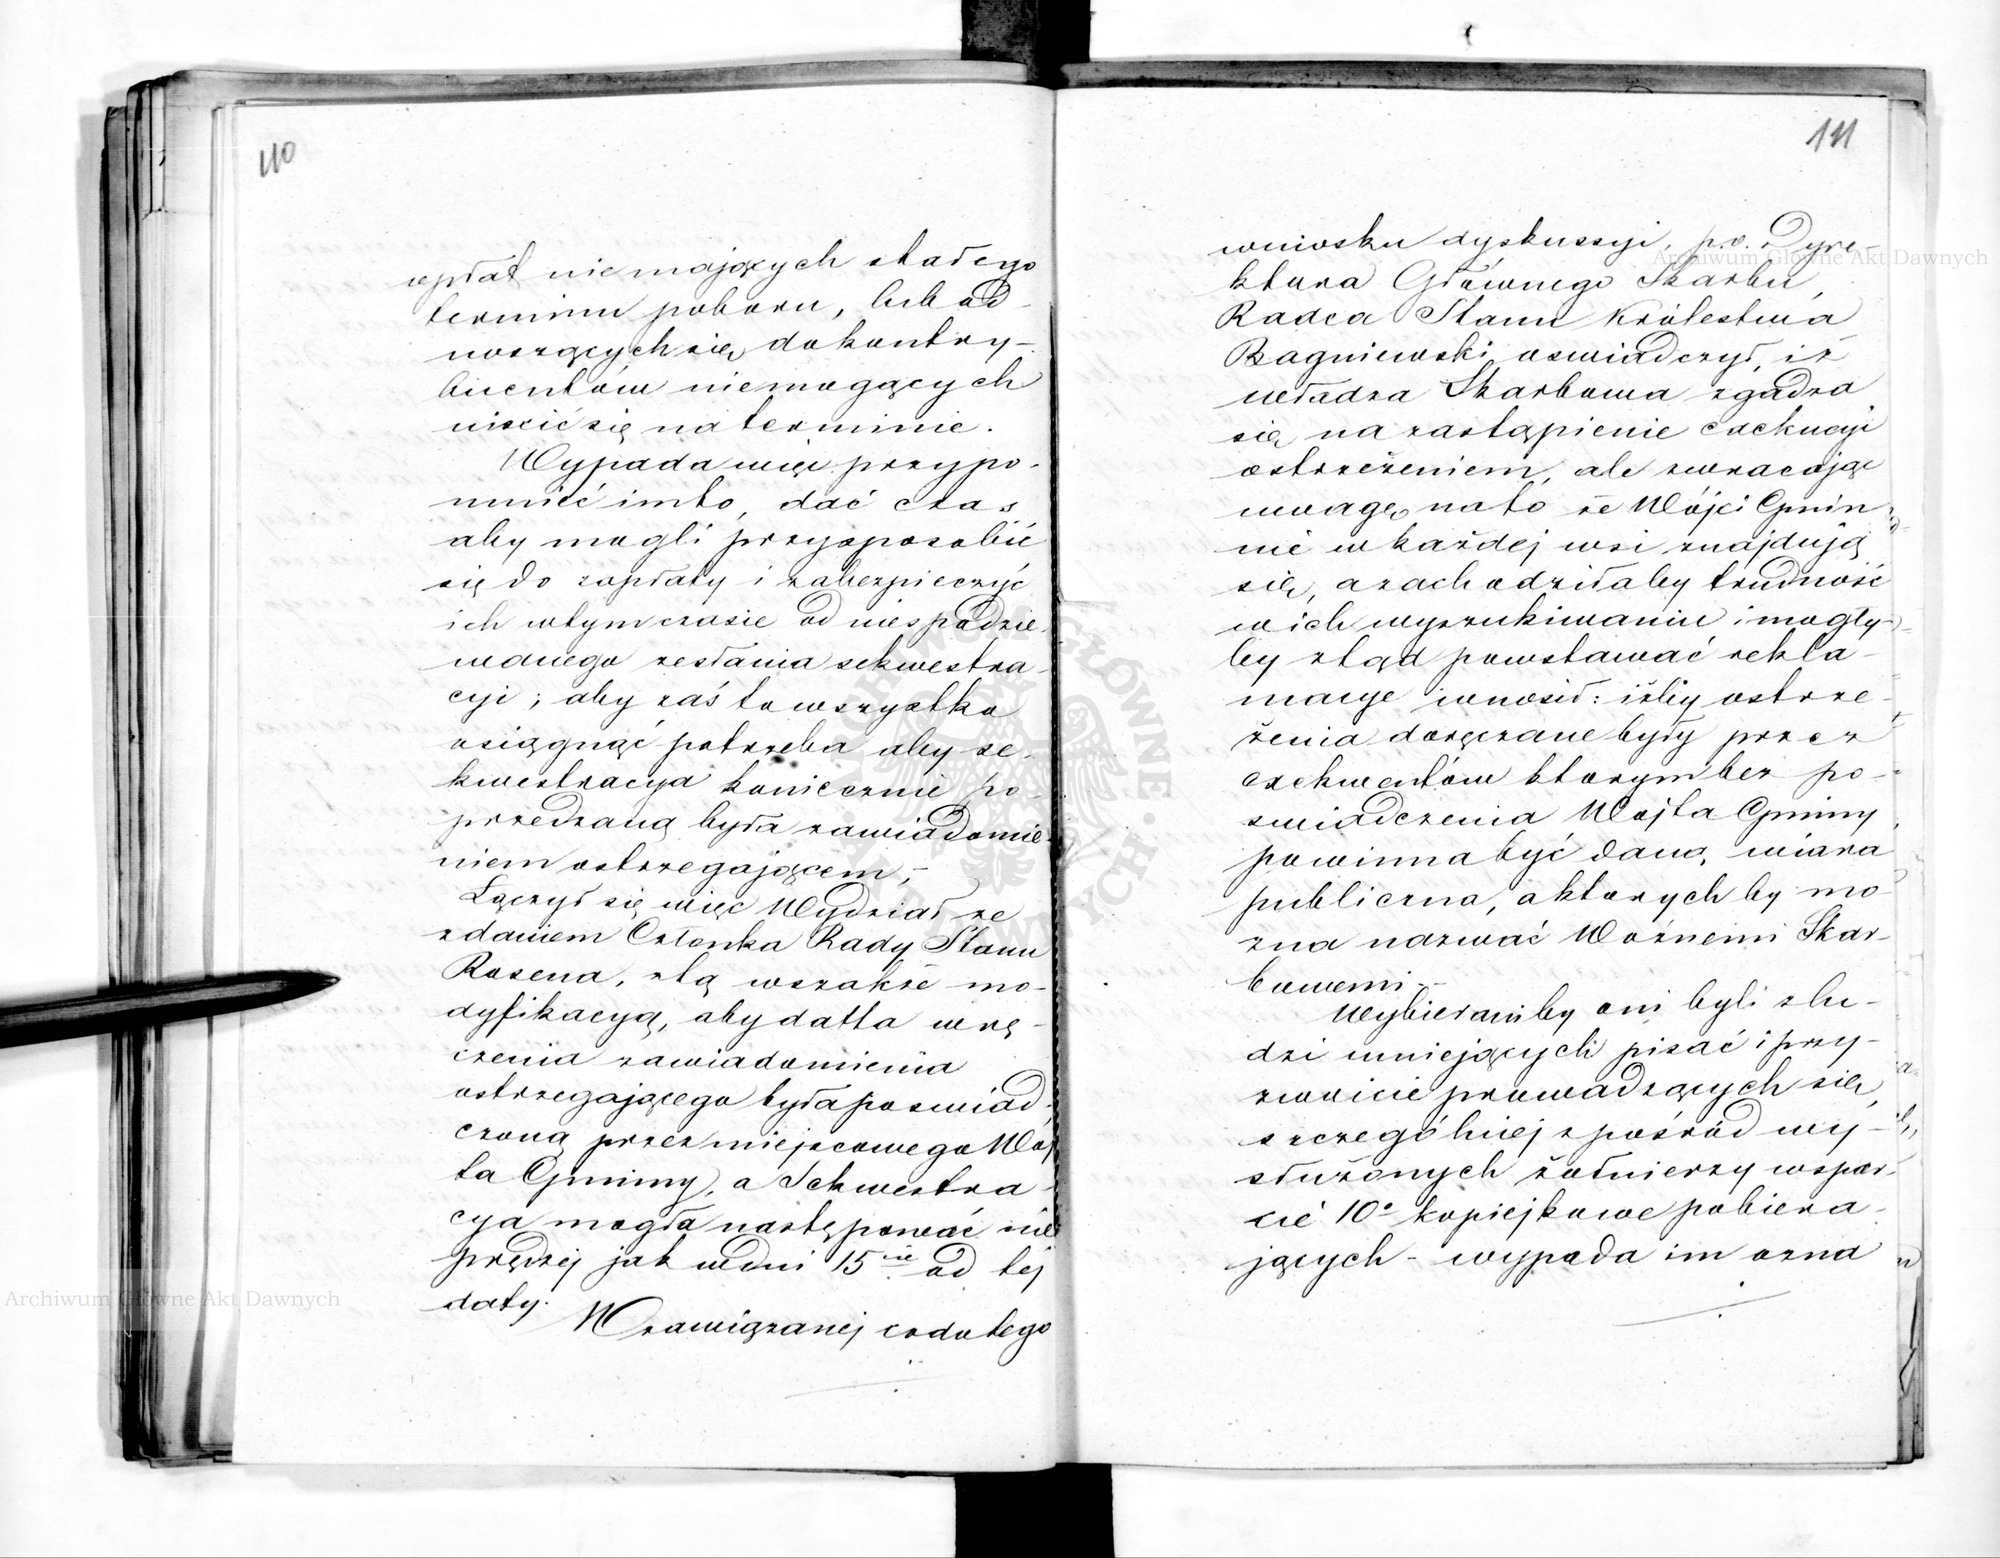 110
wpłat nie mających stałego
terminu poboru, lub od-
noszących się do kontry-
buentów niemogących
uiścić się na terminie.
Wypada więc przypo-
mnieć im to, dać czas
aby mogli przysposobić
się do zapłaty i zabezpieczyć
ich w tym czasie od niespodzie-
wanego zesłania sekwestra-
cyi; aby zaś to wszystko
osiągnąć potrzeba aby se-
kwestracya koniecznie po-
przedzaną była zawiadomie-
niem ostrzegającem,-
Łączył się więc Wydział ze
zdaniem Członka Rady Stanu
Rosena, z tą wszakże mo-
dyfikacyą, aby datta wrę-
czenia zawiadomienia
ostrzegającego była poświad-
czoną przez miejscowego Wój-
ta Gminy, a Sekwestra-
cya mogła następować nie
prędzej jak w dni 15cie od tej
daty.
W zawiązanej co do tego
111
wniosku dyskussyi, p.o. Dyre-
ktora Głównego Skarbu,
Radca Stanu Królestwa
Bagniewski oświadczył, iż
władza Skarbowa zgadza
się na zastąpienie exekucyi
ostrzeżeniem, ale zwracając
uwagę na to że Wójci Gmin
nie w każdej wsi znajdują
się, a zachodziłaby trudność
w ich wyszukiwaniu i mogły-
by ztąd powstawać rekla-
macye wnosił: iżby ostrze-
żenia doręczane były przez
exekwentów którym bez po-
świadczenia Wójta Gminy,
powinna być daną wiara
publiczna, a których by mo-
żna nazwać Woźnemi Skar-
bowemi.-
Wybierani by oni byli z lu-
dzi umiejących pisać i przy-
zwoicie prowadzących się,
szczególniej z pośród wy-
służonych żołnierzy wspar-
cie 10o kopiejkowe pobiera-
jących - wypada im ozna
Archiwum Główne Akt Dawnych
Archiwum Główne Akt Dawnych